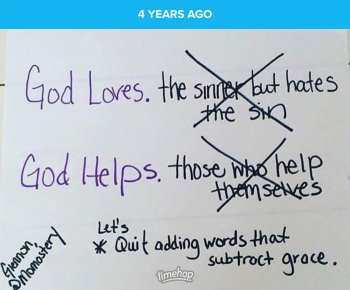 4 YEARS AGO
God Loves. the sinner but hates
the sin
God Helps. those who help
themselves
Let's
* Quit adding words that
subtract grace.
Glennon
@Momastery
timehop